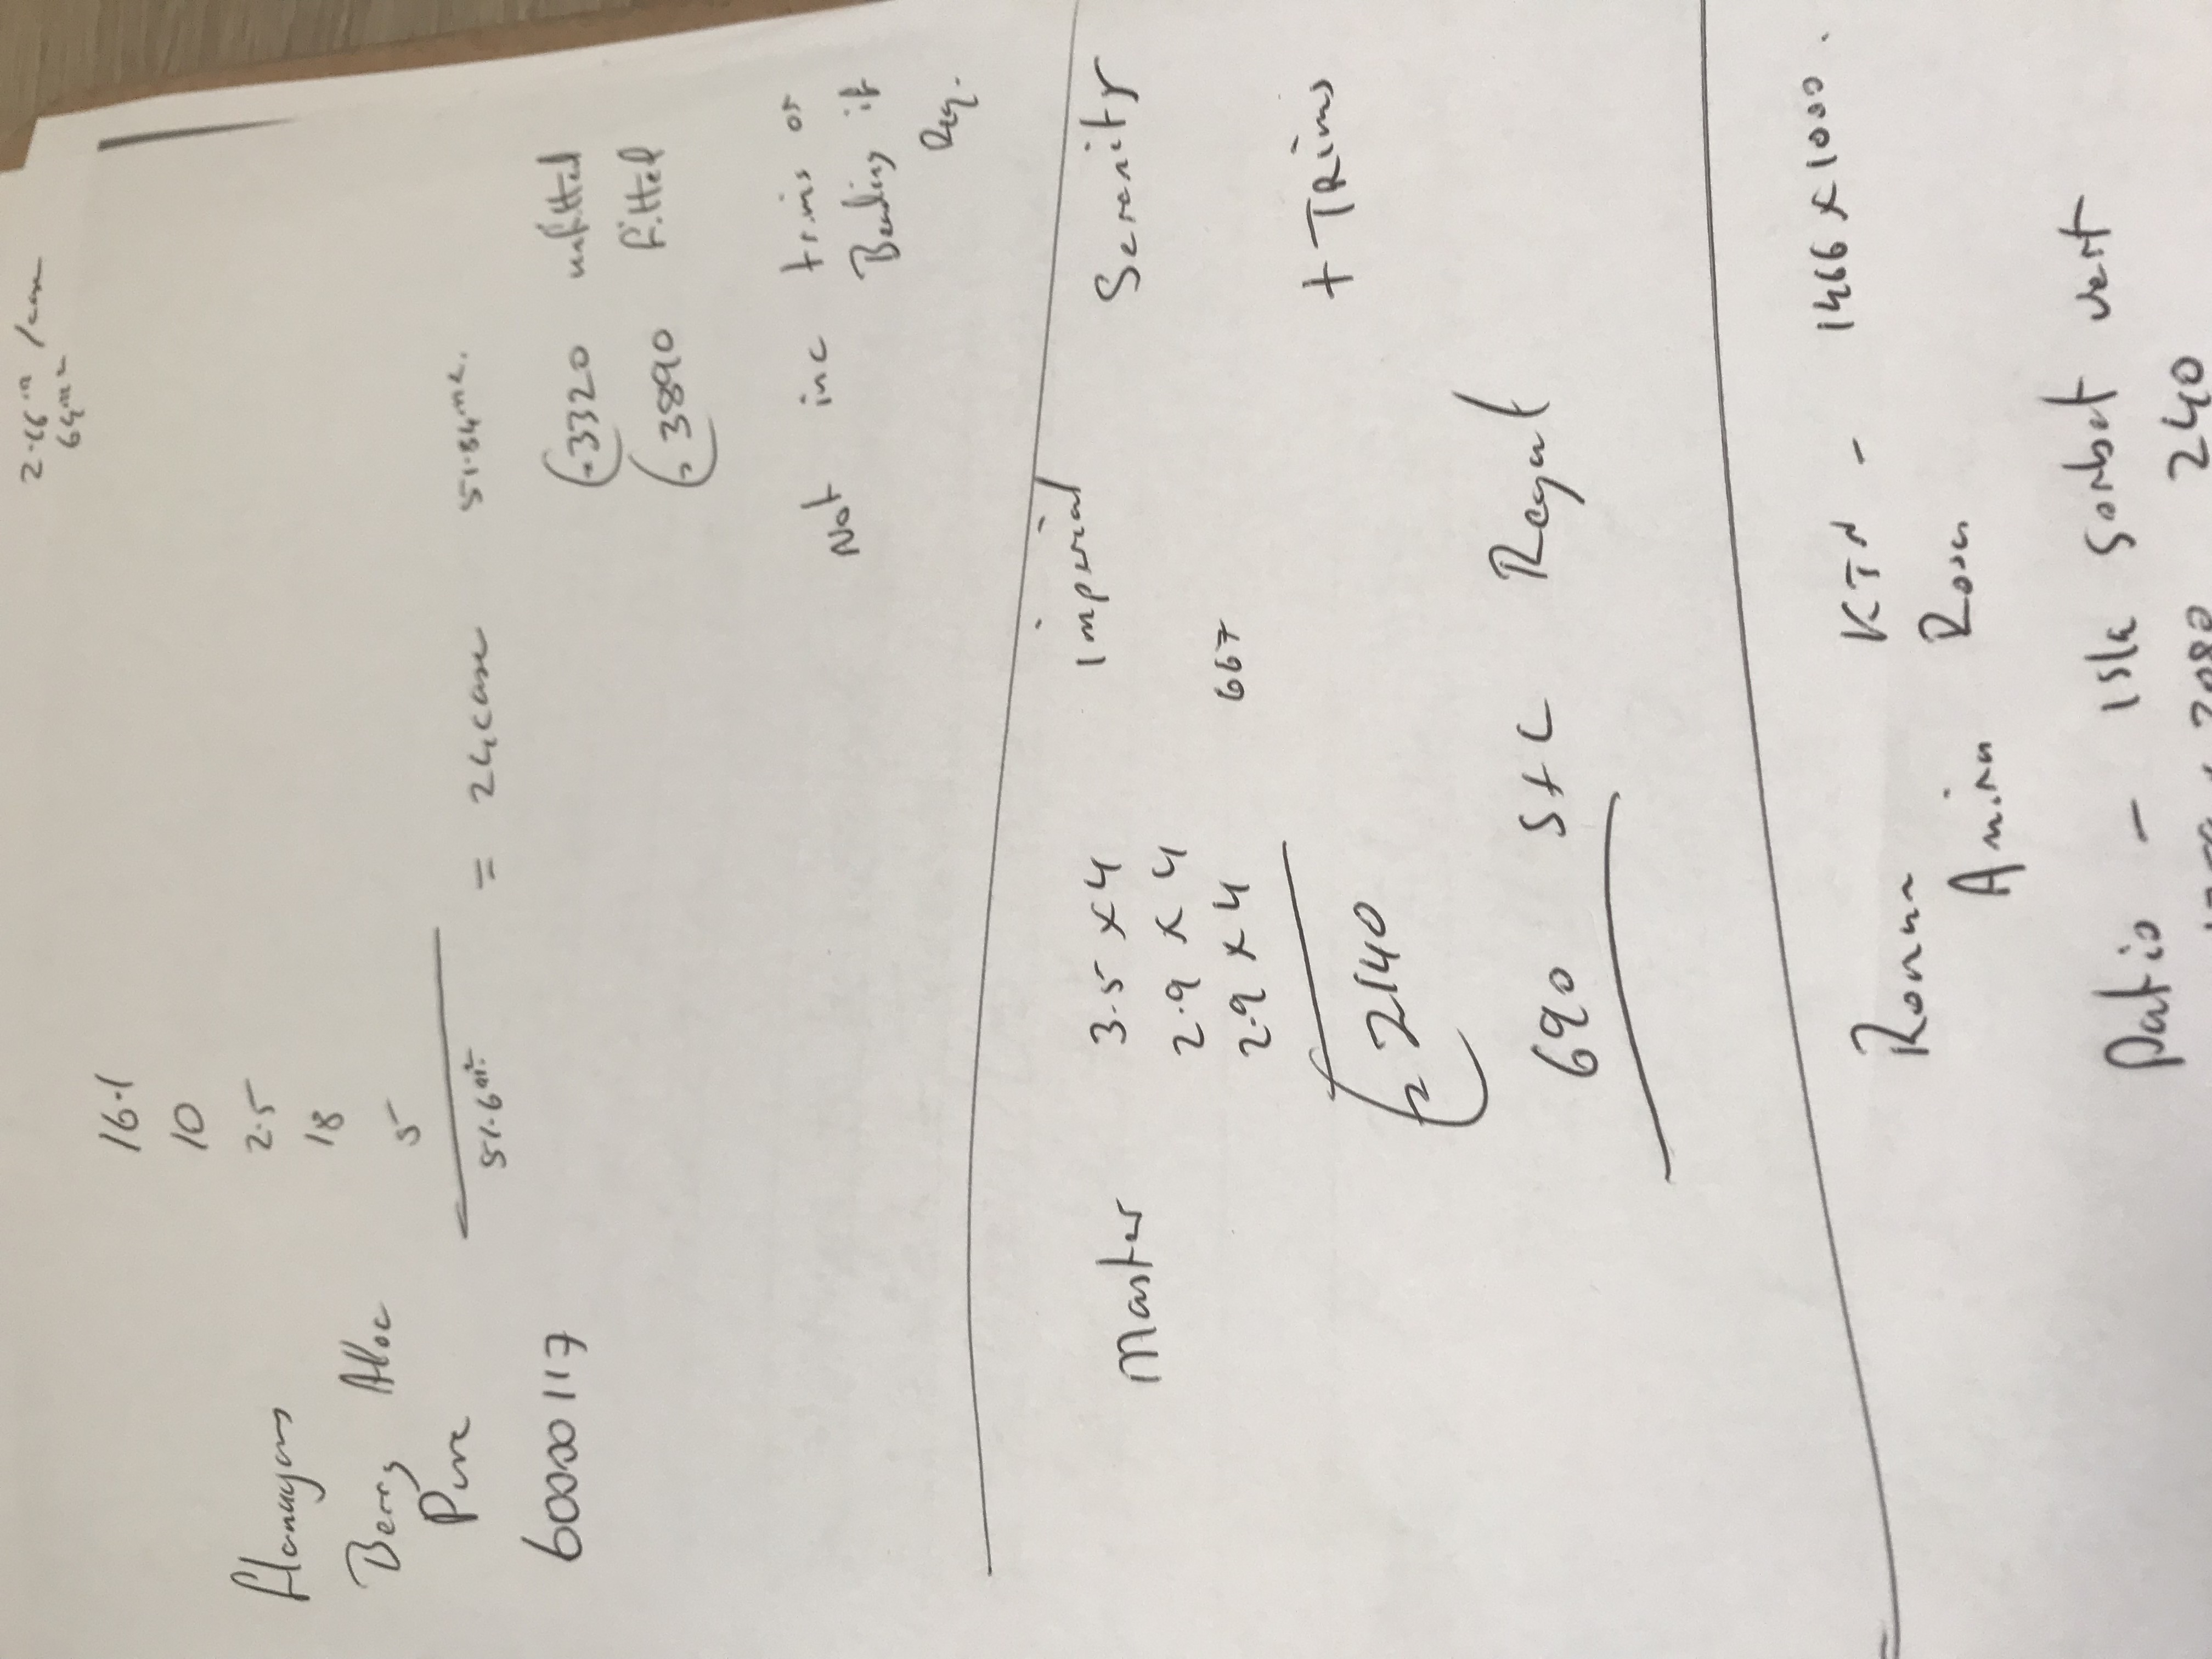 2.16m /case
64m2
16.1
10
2.5
18
5
51.6m2 = 24case 51.84m2.
Berry Alloc
Pure
60000117
3320 unfitted
3890 fitted
Not inc trims or
Beading if
Req.
Master 3.5 x 4 imperial Serenity
2.9 x 4
2.9 x 4 667
+ TRims
2140
690 S+L Regent
Roman KTN - 1466 x 1000.
Amira Rosa
Patio - Isla Sorbet vert
2080 240